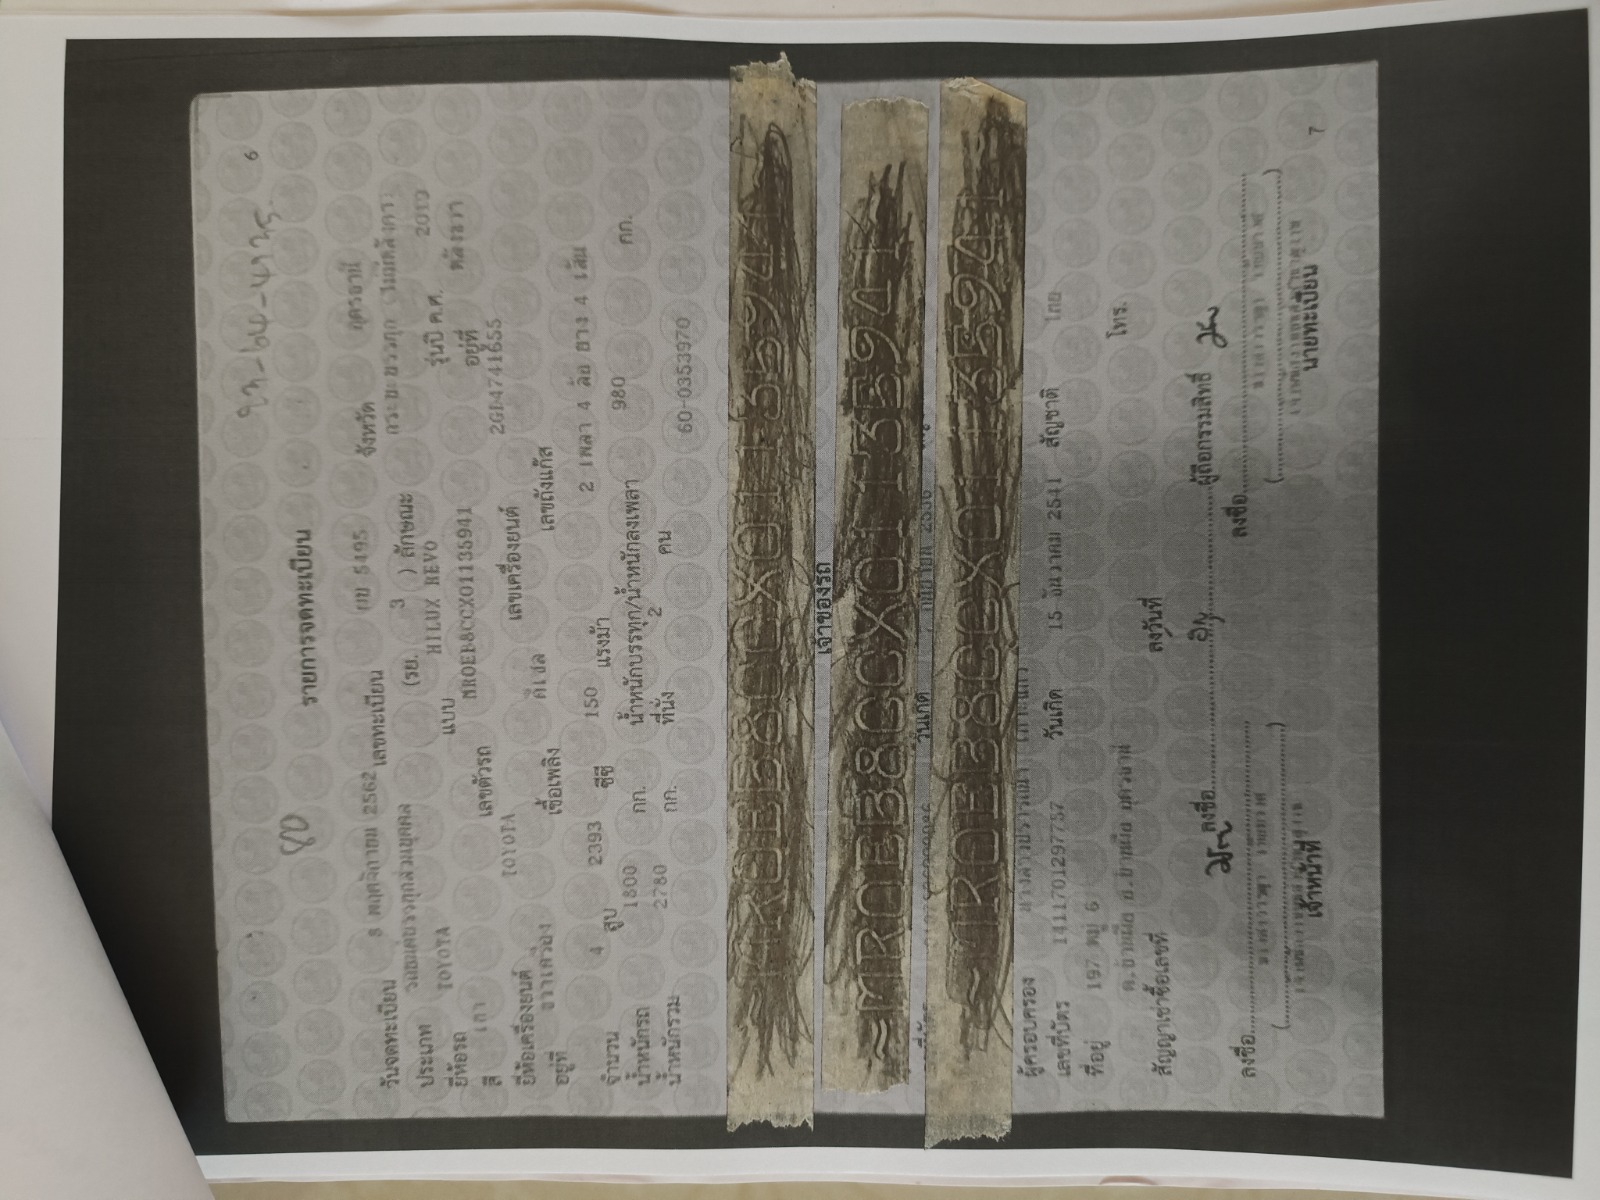 6
รายการจดทะเบียน
วันจดทะเบียน 8 พฤศจิกายน 2562 เลขทะเบียน 5495 จังหวัด อุดรธานี
ประเภท รถยนต์บรรทุกส่วนบุคคล (รย. 3 ) ลักษณะ กระบะบรรทุก (ไม่มีหลังคา)
ยี่ห้อรถ TOYOTA แบบ HILUX REVO รุ่นปี ค.ศ. 2019
สี เทา เลขตัวรถ MR0EB8CCX01135941 อยู่ที่
ยี่ห้อเครื่องยนต์ TOYOTA เลขเครื่องยนต์ 2GD4741655
อยู่ที่ ขวาเครื่อง เชื้อเพลิง ดีเซล เลขถังแก๊ส
จำนวน 4 สูบ 2393 ซีซี 150 แรงม้า 2 เพลา 4 ล้อ ยาง 4 เส้น
น้ำหนักรถ 1800 กก. น้ำหนักบรรทุก/น้ำหนักลงเพลา 980 กก.
น้ำหนักรวม 2780 กก. ที่นั่ง 2 คน 60-0353970
MR0EB8CCX01135941
เจ้าของรถ
MR0EB8CCX01135941
วันเกิด
MR0EB8CCX01135941
ผู้ครอบครอง
เลขที่บัตร 1411701297757 วันเกิด 15 ธันวาคม 2541 สัญชาติ ไทย
ที่อยู่ 197 หมู่ 6
ต.บ้านผือ อ.บ้านผือ อุดรธานี โทร.
สัญญาเช่าซื้อเลขที่ ลงวันที่
ลงชื่อ ผู้ถือกรรมสิทธิ์
ลงชื่อ ลงชื่อ
เจ้าหน้าที่ นายทะเบียน
7